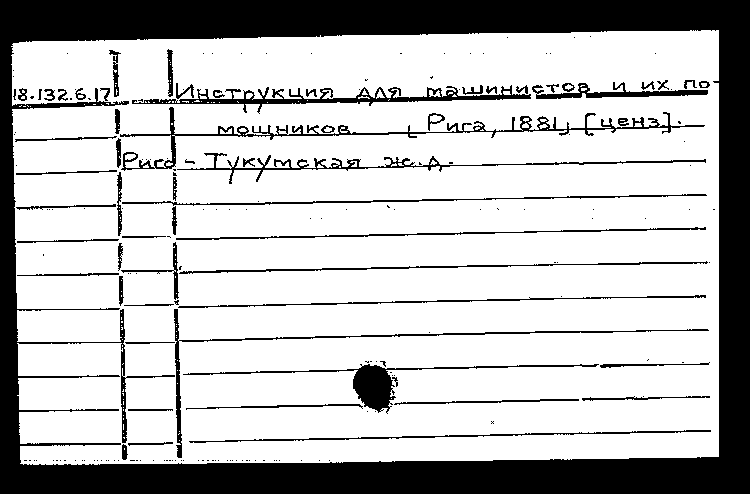 18.132.6.17 Инструкция для машинистов и их по-
мощников. [Рига, 1881] [ценз].
Риго-Тукумская ж.д.